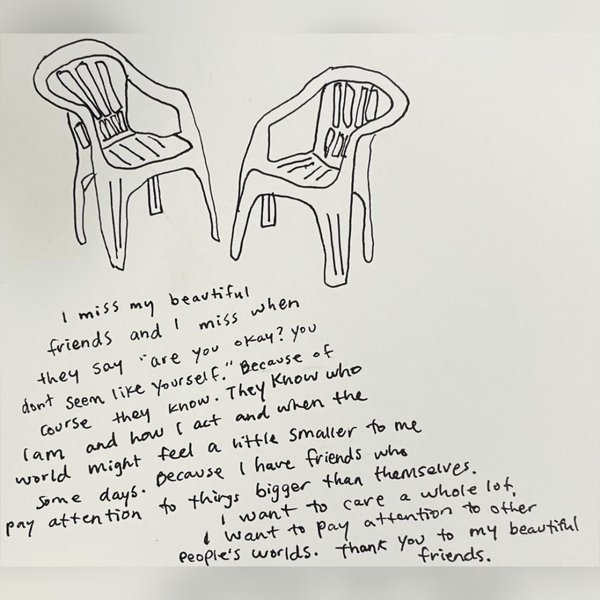 I miss my beautiful
friends and I miss when
they say "are you okay? you
dont seem like yourself." Because of
course they know. They know who
I am and how I act and when the
world might feel a little smaller to me
some days. Because I have friends who
pay attention to things bigger than themselves.
I want to care a whole lot.
I want to pay attention to other
people's worlds. Thank you to my beautiful
friends.